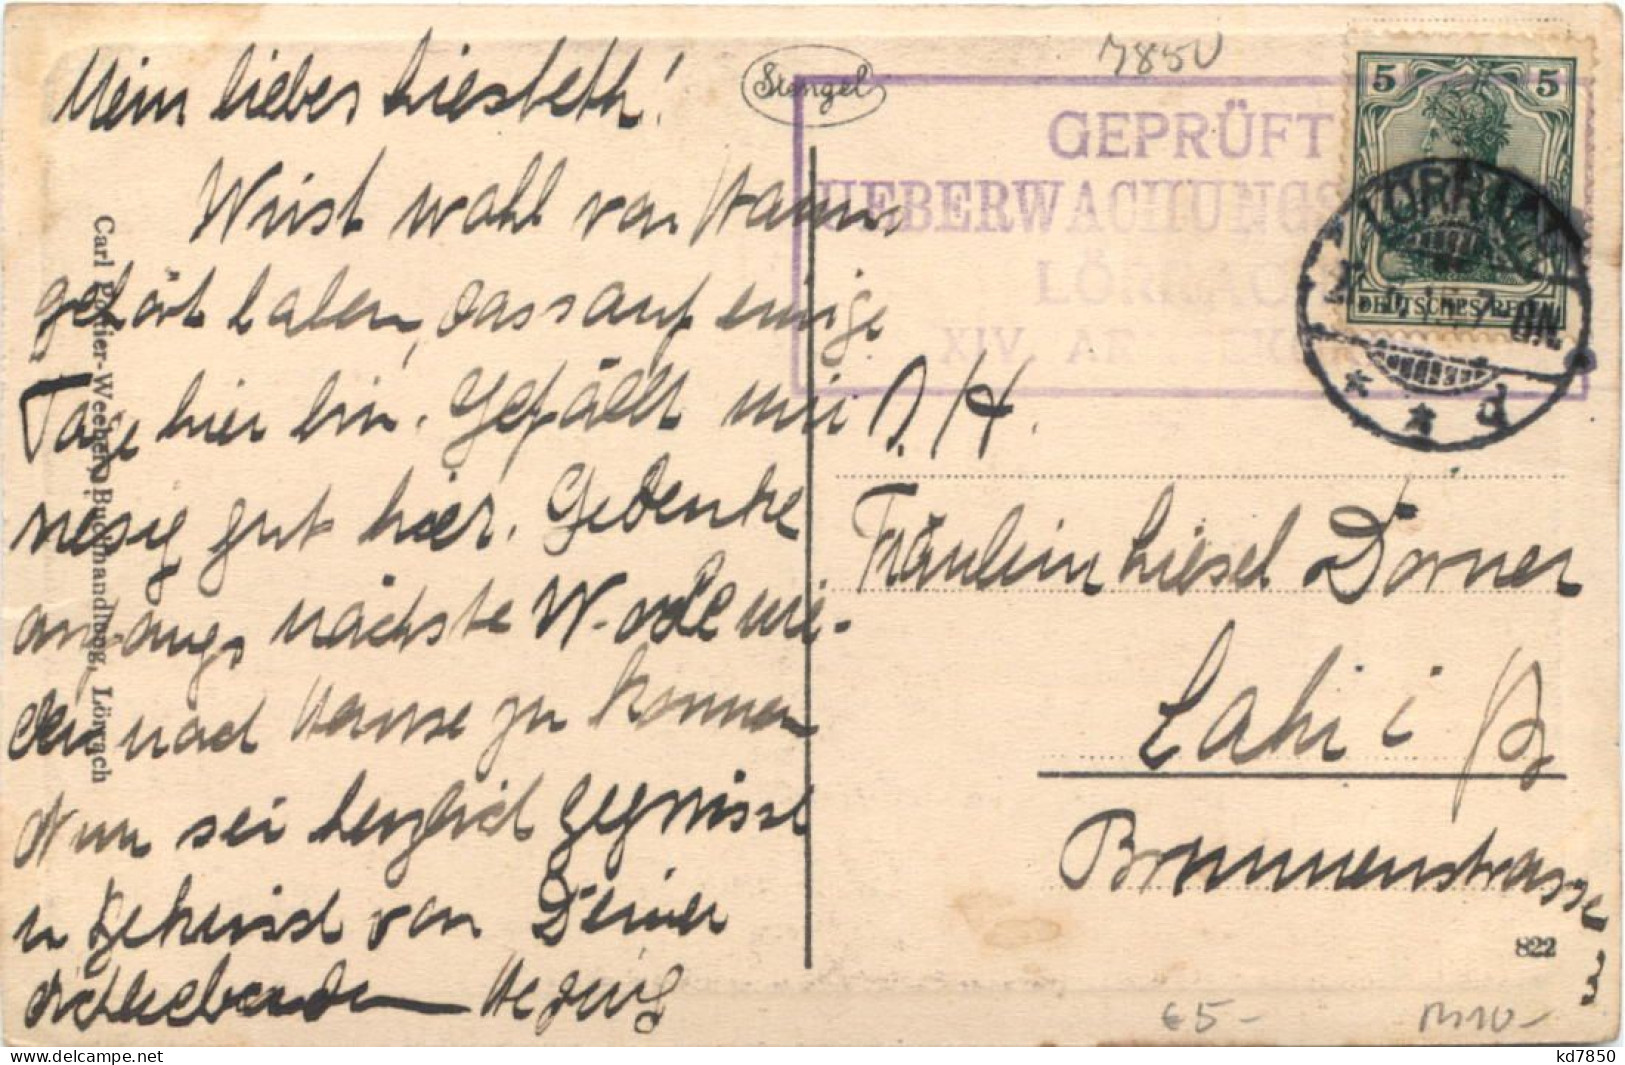 Mein liebes Liesbeth!
Wirst wohl von
gehört haben, dass auf einige
Tage hier bin. Gefällt mir
riesig gut hier. Gedenke
anfangs nächste Woche wie-
der nach Hause zu kommen
Nun sei herzlich gegrüsst
u geküsst von Deiner
Dichliebenden Hedwig
Carl Poltier-Weeber, Buchhandlung, Lörrach
Stengel
7850
GEPRÜFT
UEBERWACHUNGS
LÖRRACH
XIV. AR
5 5
DEUTSCHES REICH
LÖRRACH
d
Fräulein Liesel Dörner
Lahr i B
Brunnenstrasse
3
822
€5-
kd7850